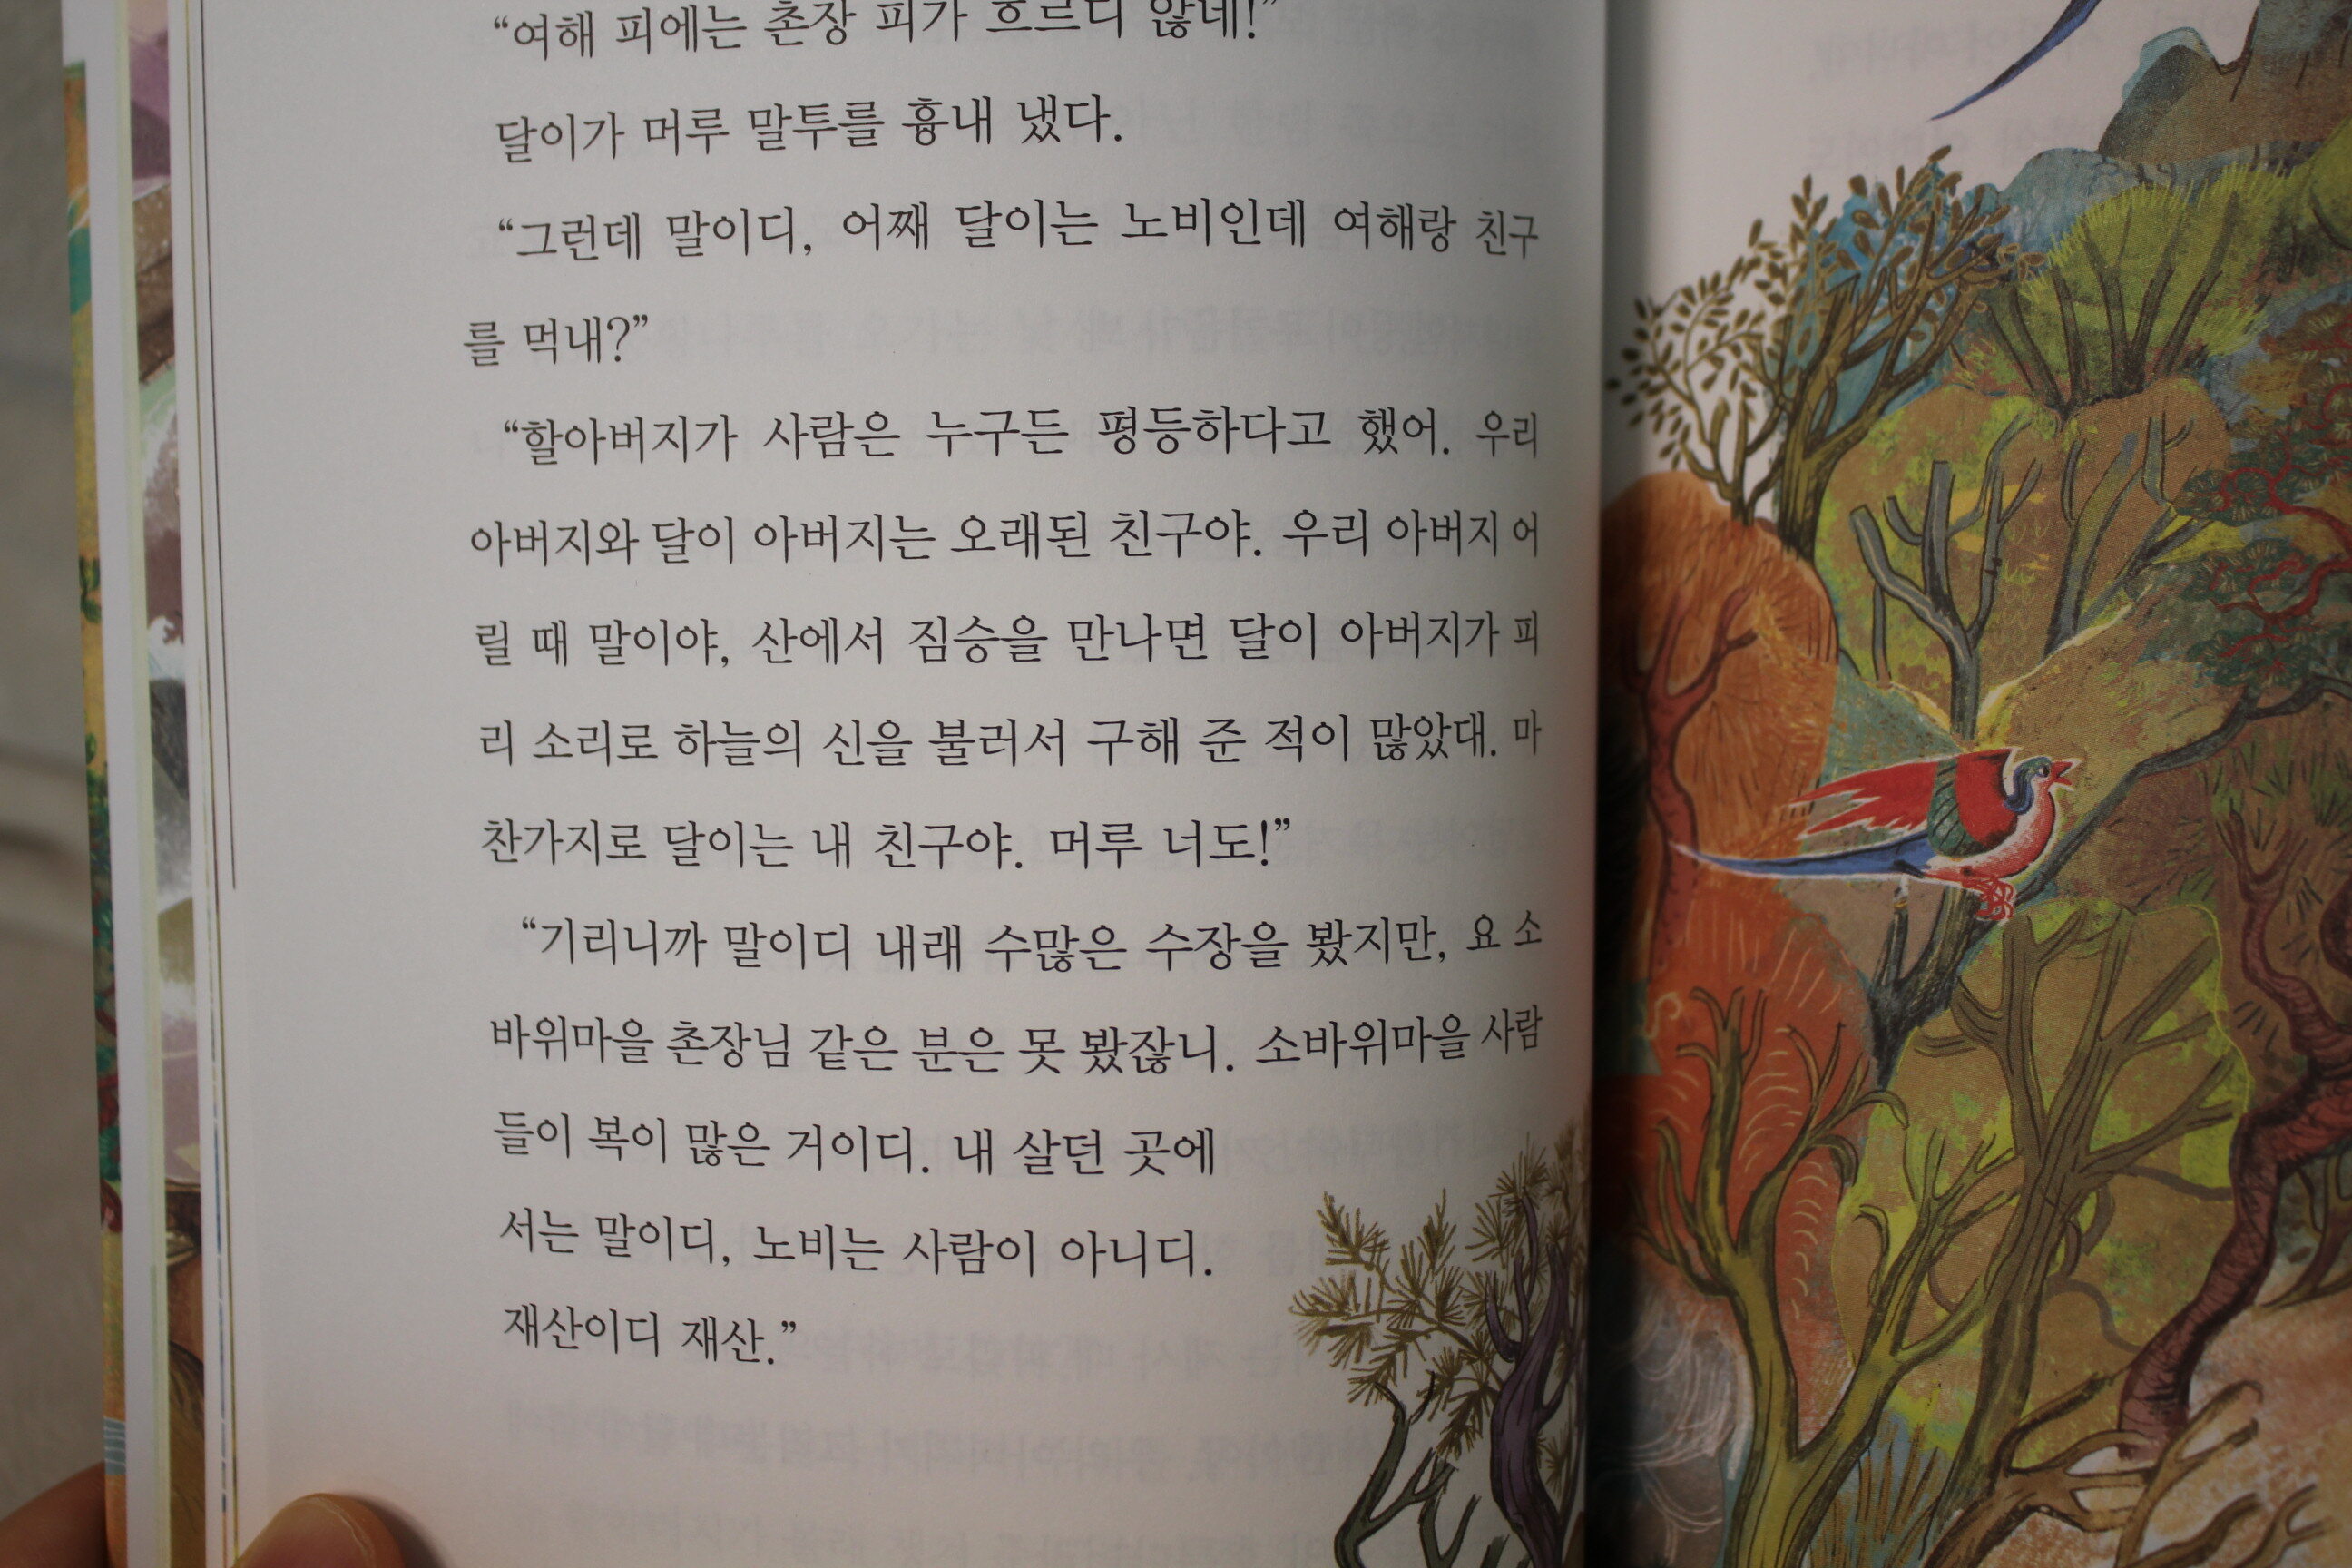 “여해 피에는 촌장 피가 흐르디 않네!”
달이가 머루 말투를 흉내 냈다.
“그런데 말이디, 어째 달이는 노비인데 여해랑 친구
를 먹내?”
“할아버지가 사람은 누구든 평등하다고 했어. 우리
아버지와 달이 아버지는 오래된 친구야. 우리 아버지 어
릴 때 말이야, 산에서 짐승을 만나면 달이 아버지가 피
리 소리로 하늘의 신을 불러서 구해 준 적이 많았대. 마
찬가지로 달이는 내 친구야. 머루 너도!”
“기리니까 말이디 내래 수많은 수장을 봤지만, 요 소
바위마을 촌장님 같은 분은 못 봤잖니. 소바위마을 사람
들이 복이 많은 거이디. 내 살던 곳에
서는 말이디, 노비는 사람이 아니디.
재산이디 재산.”